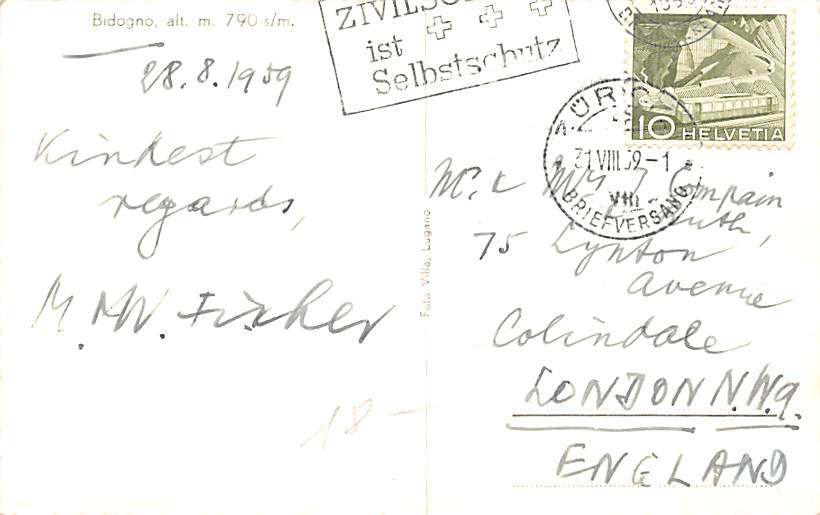 Bidogno, alt. m. 790 s/m.
ZIVILSC
ist
Selbstschutz
28.8.1959
Kindest
regards,
M. W. Fischer
18 –
Foto Villa, Lugano
10 HELVETIA
ZÜRIC
31.VIII.59-1
VIII
BRIEFVERSAND
Mr & Mrs J Compain
South,
75 Lynton
Avenue
Colindale
LONDON N.W.9.
ENGLAND